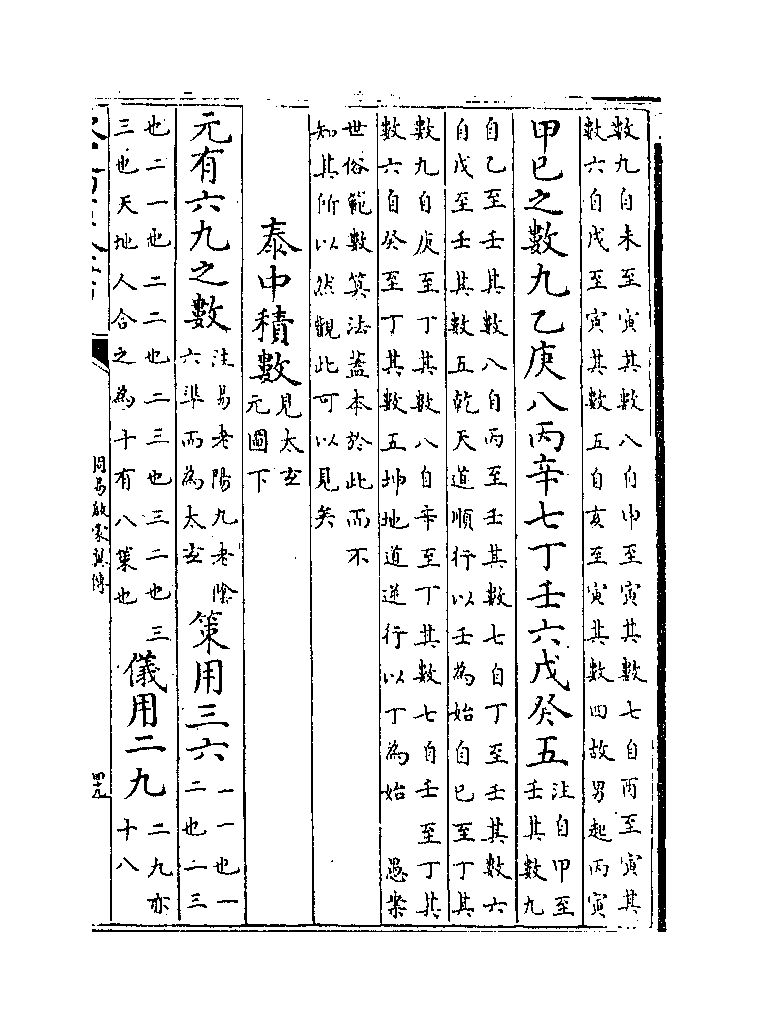 數九自未至寅其數八自申至寅其數七自丙至寅其
數六自戌至寅其數五自亥至寅其數四故男起丙寅
甲巳之數九乙庚八丙辛七丁壬六戊癸五注自甲至
壬其數九
自乙至壬其數八自丙至壬其數七自丁至壬其數六
自戊至壬其數五乾天道順行以壬為始自巳至丁其
數九自庚至丁其數八自辛至丁其數七自壬至丁其
數六自癸至丁其數五坤地道逆行以丁為始 愚案
世俗範數筭法蓋本於此而不
知其所以然觀此可以見矣
泰中積數見太玄
元圖下
元有六九之數注易老陽九老陰
六準而為太玄
策用三六一一也一
二也一三
也二一也二二也二三也三二也三
三也天地人合之為十有八策也
儀用二九二九亦
十八
周易啟蒙翼傳